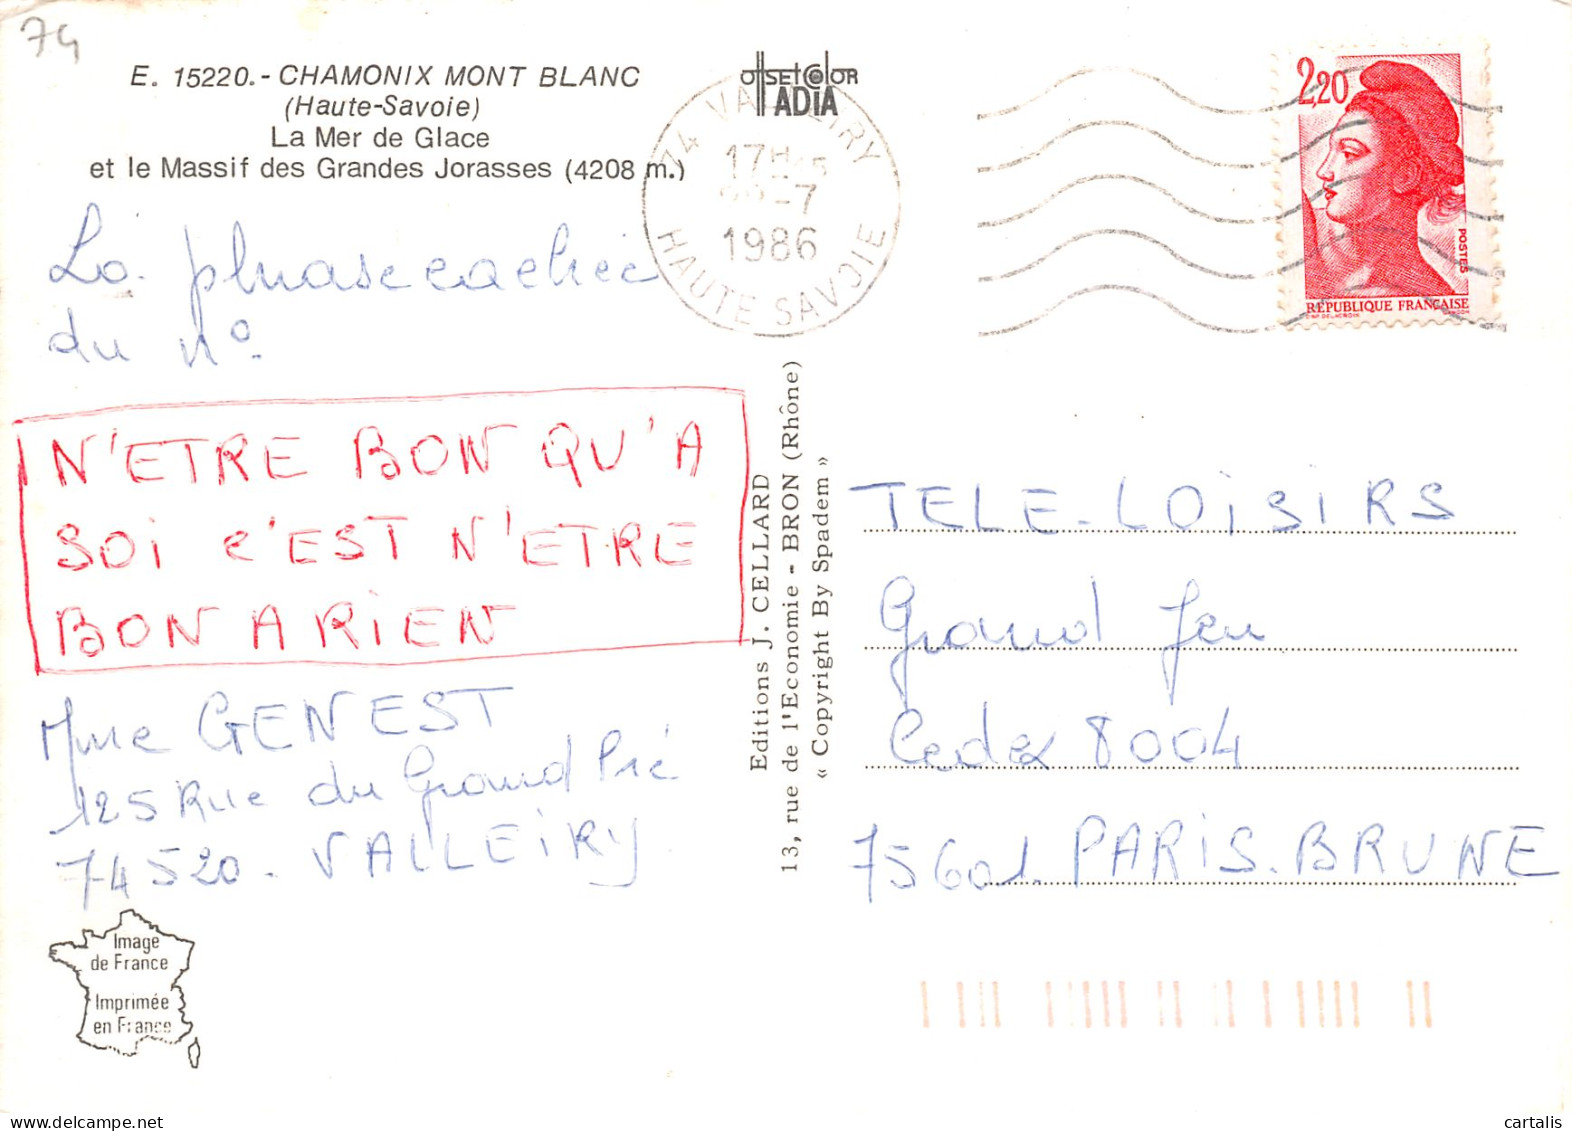 74
E. 15220.- CHAMONIX MONT BLANC
(Haute-Savoie)
La Mer de Glace
et le Massif des Grandes Jorasses (4208 m.)
OFFSETCOLOR
ADIA
74 VALLEIRY
17H45
-7
1986
HAUTE SAVOIE
2,20
POSTES
RÉPUBLIQUE FRANÇAISE
La phrase cachée
du n°.
N'ETRE BON QU'A
SOI C'EST N'ETRE
BON A RIEN
Mme GENEST
125 Rue du Grand Pré
74520. VALLEIRY
Image
de France
Imprimée
en France
Editions J. CELLARD
13, rue de l'Economie - BRON (Rhône)
« Copyright By Spadem »
TELE-LOISIRS
Grand Jeu
Cedex 8004
75601. PARIS. BRUNE
cartalis